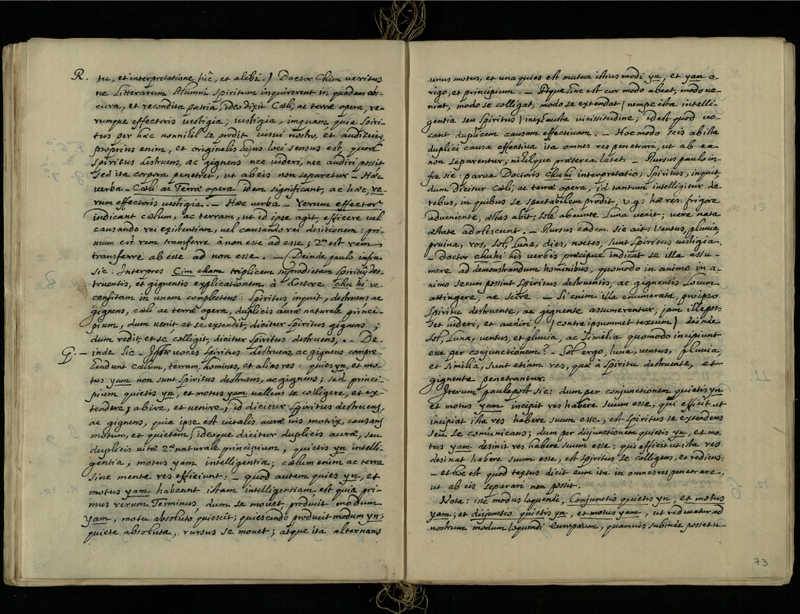 R. tu, et interpretatione sic, et alibi.) Doctor Chim veritus
ne Litterarum Alumni Spiritum inquirerent in quadam obs-
cura, et recondita patria, ideo dixit Cœli, ac terræ opera, re-
rumque effectoris vestigia; vestigia, inquam, quia Spiri-
tus per hæc nonnihil se prodit visui nostro, et auditui;
proprius enim, et originalis hujus loci sensus est, quod
Spiritus destruens, ac gignens nec videri, nec audiri possit
sed ita corpora penetret, ut ab eis non separetur - Hæc
verba - Cœli ac Terræ opera idem significant, ac hæc, re-
rum effectoris vestigia. - Hæc verba - Rerum effector
indicant cœlum, ac terram, ut id ipse agit, efficere vel
causando rei existentiam, vel causando rei desitionem: pri-
mum est rem transferre à non esse ad esse; 2.m est rem
transferre ab esse ad non esse. - Deinde paulo infra
sic: Interpres Cim cham triplicem supradictam Spiritus des-
truentis, et gignentis explicationem à doctore Chu hi re-
censitam in unam complectens: Spiritus, inquit, destruens ac
gignens, cœli ac terræ opera, duplicis auræ naturale princi-
pium, dum venit et se extendit, dicitur Spiritus gignens;
dum redit, et se colligit, dicitur Spiritus destruens. - De-
G. - inde sic - Istæ voces Spiritus destruens, ac gignens compre-
hendunt cœlum, terram, homines, et alias res: quies yn, et mo-
tus yam non sunt Spiritus destruens, ac gignens; sed princi-
pium quietis yn, et motus yam valens se colligere, et ex-
tendere, abire, et venire, id dicitur Spiritus destruens,
ac gignens, quia ipse est vitalis auræ vis motrix, causans
motum, et quietem; ideoque dicitur duplicis auræ, seu
duplicis vitæ 2.m naturale principium, quietis yn intelli-
gentia, motus yam intelligentia; cœlum enim ac terra
sine mente res efficiunt: - quod autem quies yn, et
motus yam habeant istam intelligentiam est quia pri-
mus rerum Terminus, dum se movet, producit modum
yam, motu absoluto quiescit; quiescendo producit modum yn;
quiete absoluta, rursus se movet; atque ita alternans
unus motus, et una quies est mutua istius modi yn, et yam o-
rigo, et principium. - Atque hinc est cur modo abeat, modo ve-
niat, modo se colligat, modo se extendat (nempe ista intelli-
gentia seu Spiritus) inexhausta vicissitudine; id est quod vo-
cant duplicem causam effectivam. - Hæc modo scis ab ista
duplici causa effectiva ita omnes res penetrari, ut ab ea
non separentur, nihilque præterea latet. - Rursus paulo in-
fra sic: parva Doctoris Chuhi interpretatio, Spiritus, inquit,
dum dicitur Cœli, ac terræ opera, id tantum intelligitur de
rebus, in quibus se spectabilem prodit, v.g. hæ res: frigore
adveniente, æstas abit, Sole abeunte Luna venit; vere nata
æstate adolescunt. - Rursus eadem sic ait: Ventus, pluvia,
pruina, ros, Sol, Luna, dies, noctes, sunt Spiritus vestigia.
Doctor Chuhi his verbis præcipue indicat se illa assu-
mere ad demonstrandum hominibus, quomodo in animo in a-
nimo secum possint Spiritus destruentis, ac gignentis locum
attingere, ac scire. - Si enim illa enumerata, pro ipso
Spiritu destruente, ac gignente assumerentur, jam ille pos-
set videri, et audiri (contra ipsummet textum) deinde
Sol, Luna, ventus, et pluvia, ac similia quomodo incipiunt
esse per conjunctionem? - Sol ergo, luna, ventus, pluvia,
et similia, sunt etiam res, quæ à Spiritu destruente, et
gignente penetrantur.
Iterum paulo post sic: dum per conjunctionem quietis yn
et motus yam incipit res habere suum esse, qui efficit, ut
incipiat ista res habere suum esse, est Spiritus se extendens
seu se comunicans; dum per disjunctionem quietis yn, et mo-
tus yam desinit res habere suum esse: qui efficit ut ista res
desinat habere suum esse, est Spiritus se colligens, et rediens:
- et hoc est quod textus dicit eum ita in omnes res penetrare,
ut ab eis separari non possit.
Nota: iste modus loquendi, Conjunctio quietis yn, et motus
yam; et disjunctio quietis yn, et motus yam, ut reducatur ad
nostrum modum loquendi Europæum, quamvis subinde posset u-
73